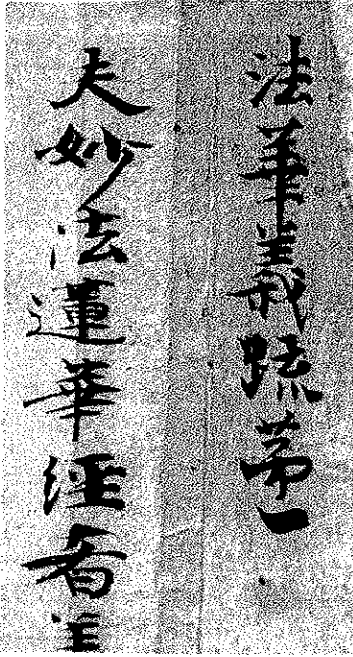 法華義疏第一
夫妙法蓮華經者